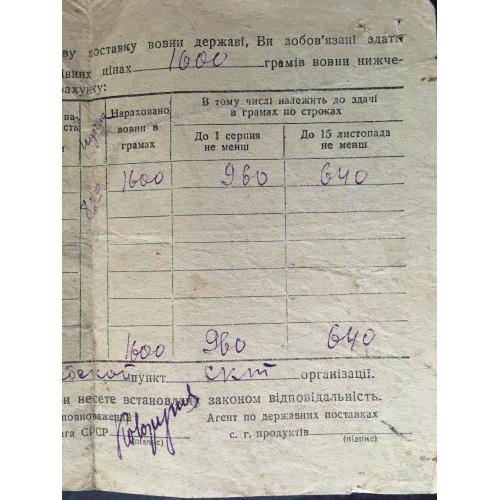 ву поставку вовни державі, Ви зобов'язані здати
івних цінах 1600 грамів вовни нижче-
рахунку:
ва-
ність
и
Нараховано
вовни в
грамах
В тому числі належить до здачі
в грамах по строках
До 1 серпня
не менш
До 15 листопада
не менш
1600 960 640
1600 960 640
пункт скт організації.
ви несете встановлену законом відповідальність.
повноважени
ага СРСР
(підпис)
Агент по державних поставках
с. г. продуктів
(підпис)